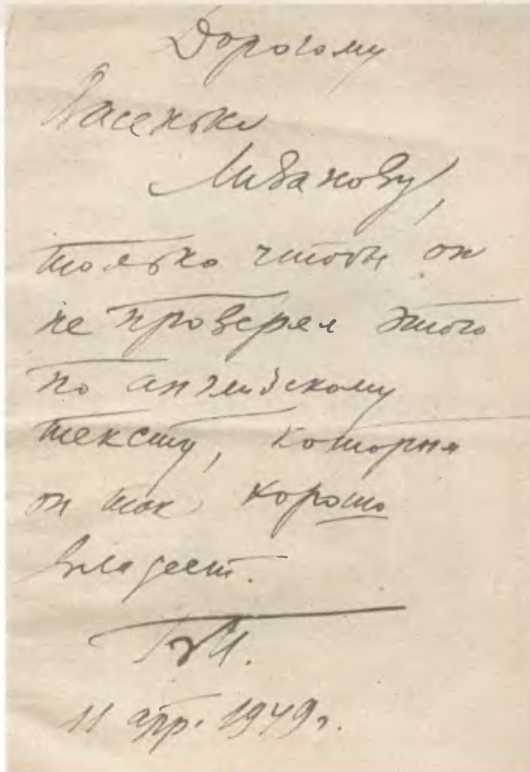 Дорогому
Васеньке
Ливанову,
только чтобы он
не проверял этого
по английскому
тексту, которым
он так хорошо
владеет.
БП.
11 апр. 1949 г.